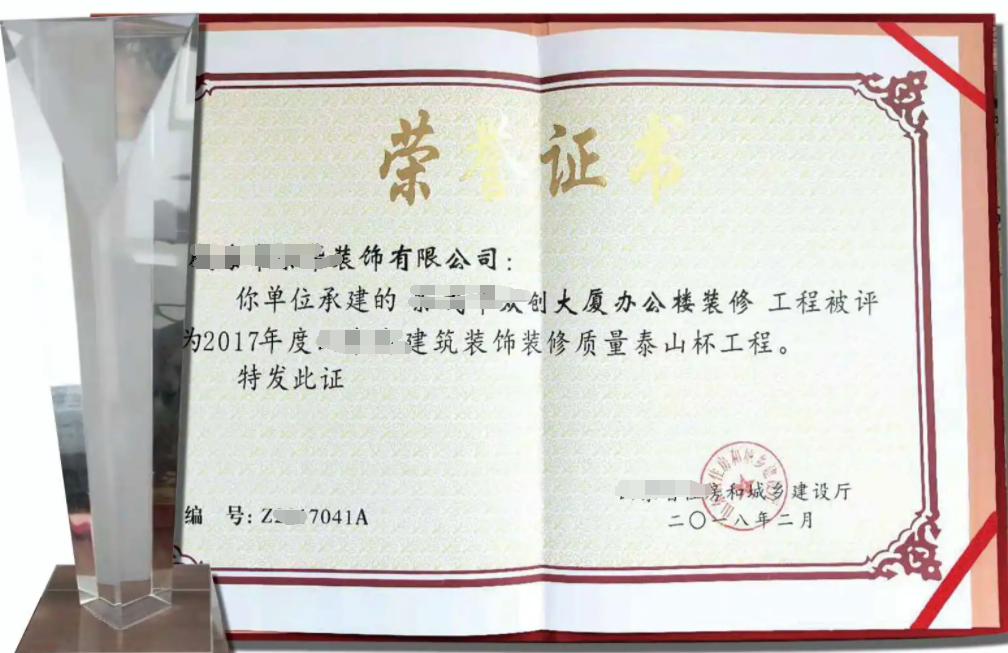 荣誉证书
装饰有限公司：
你单位承建的 众创大厦办公楼装修 工程被评
为2017年度 建筑装饰装修质量泰山杯工程。
特发此证
住房和城乡建设厅
编 号: Z 7041A
二〇一八年二月